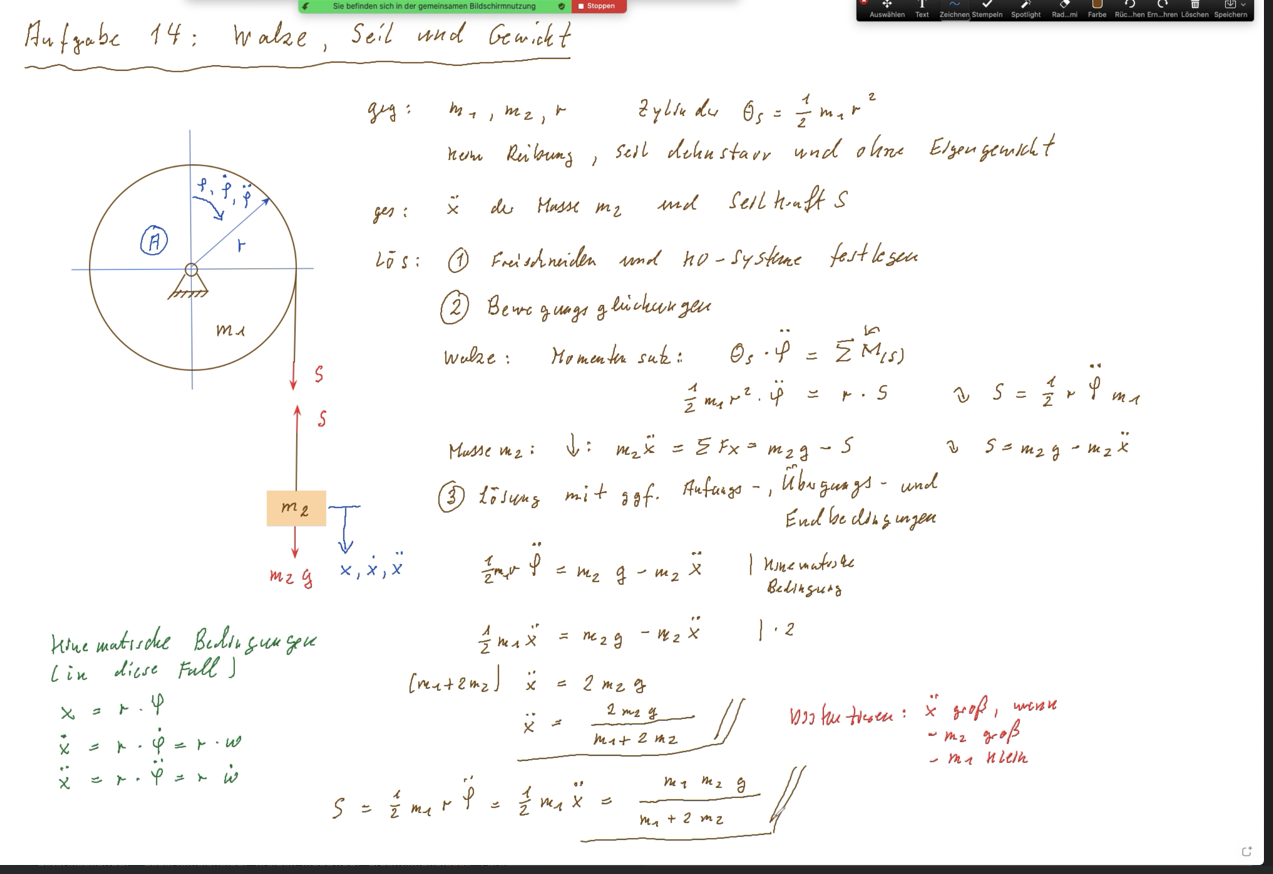 Sie befinden sich in der gemeinsamen Bildschirmnutzung
Stoppen
Auswählen Text Zeichnen Stempeln Spotlight Rad...mi Farbe Rüc...hen Ern...hren Löschen Speichern
Aufgabe 14: Walze, Seil und Gewicht
geg: m1, m2, r Zylinder Θs = 1/2 m1 r²
keine Reibung, Seil dehnstarr und ohne Eigengewicht
ges: ẍ der Masse m2 und Seilkraft S
Lös: ① Freischneiden und KO-Systeme festlegen
② Bewegungsgleichungen
Walze: Momentensatz: Θs · φ̈ = Σ M(S)
1/2 m1 r² · φ̈ = r · S ↷ S = 1/2 r φ̈ m1
Masse m2: ↓: m2 ẍ = Σ Fx = m2 g - S ↷ S = m2 g - m2 ẍ
③ Lösung mit ggf. Anfangs-, Übergangs- und
Endbedingungen
1/2 m1 r φ̈ = m2 g - m2 ẍ | Kinematische
Bedingung
1/2 m1 ẍ = m2 g - m2 ẍ | · 2
(m1 + 2 m2) ẍ = 2 m2 g
ẍ = 2 m2 g / (m1 + 2 m2)
S = 1/2 m1 r φ̈ = 1/2 m1 ẍ = m1 m2 g / (m1 + 2 m2)
φ, φ̇, φ̈
A
r
m1
S
S
m2
m2 g
x, ẋ, ẍ
Kinematische Bedingungen
(in diese Fall)
x = r · φ
ẋ = r · φ̇ = r · ω
ẍ = r · φ̈ = r ω̇
ẍ groß, wenn
- m2 groß
- m1 klein